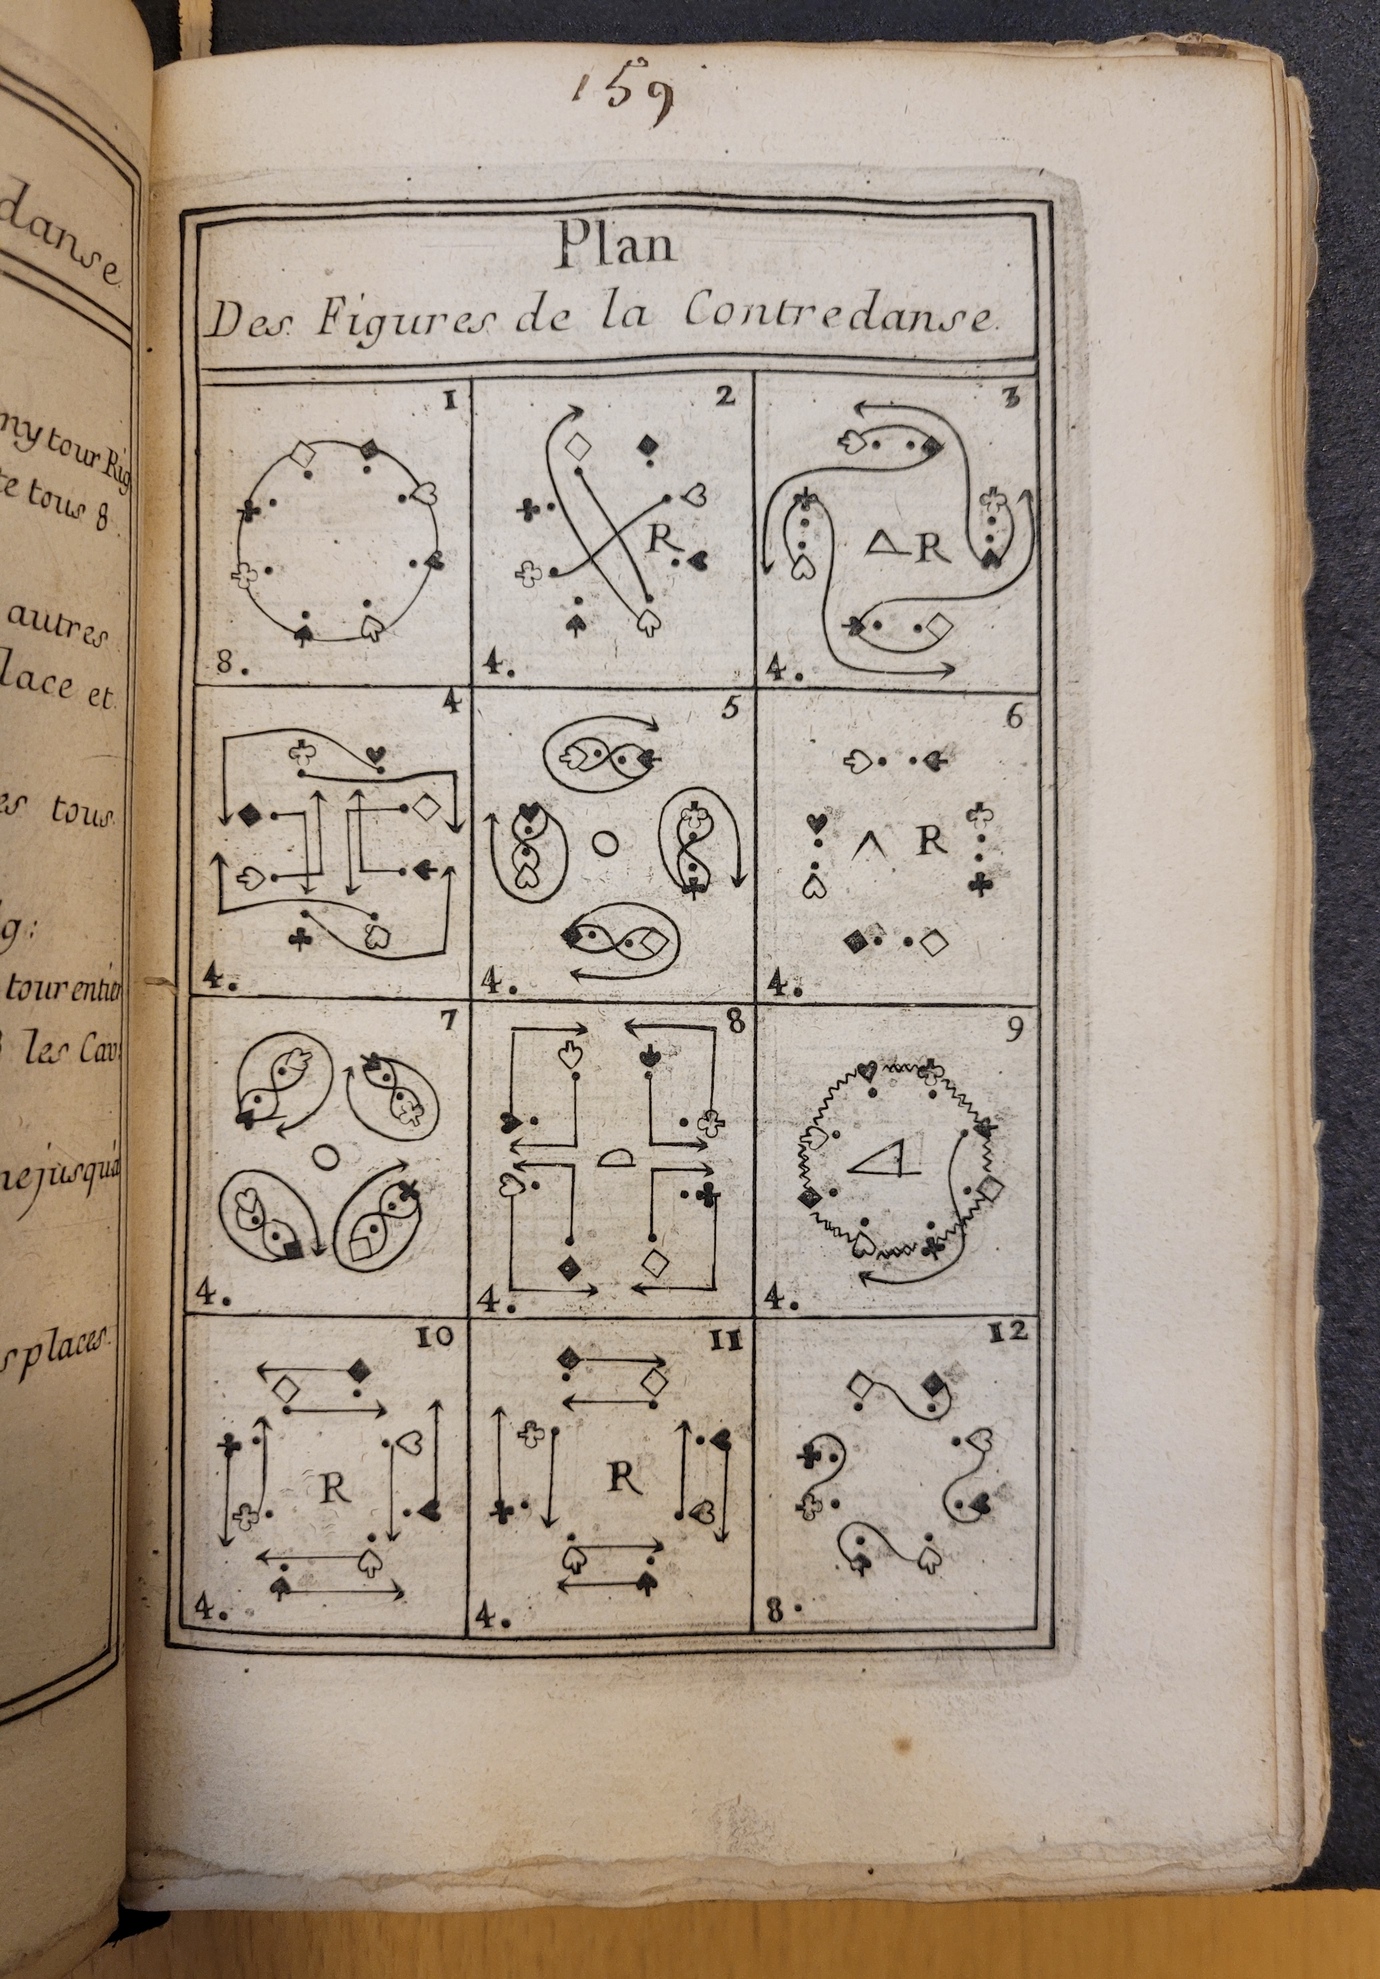 danse
my tour Rig
te tous 8
autres
lace et
es tous
g:
tour entier
les Cav:
ne jusqu'à
s places.
159
Plan
Des Figures de la Contredanse.
1
8.
2
R
4.
3
R
4.
4
4.
5
O
4.
6
R
4.
7
O
4.
8
D
4.
9
4.
10
R
4.
11
R
4.
12
8.